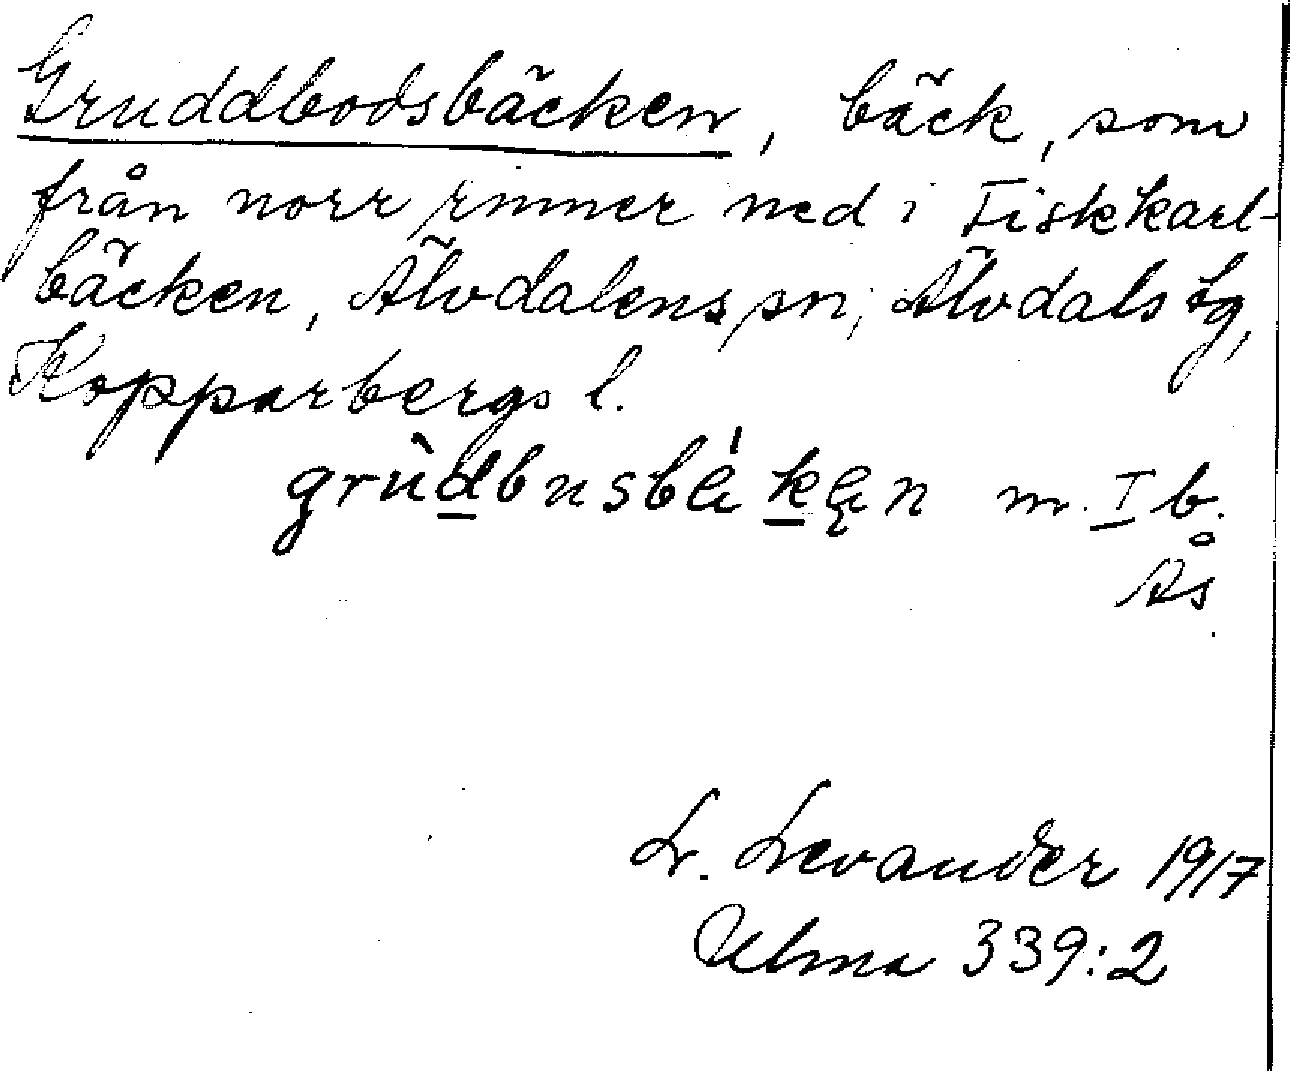 Gruddbodsbäcken, bäck, som
från norr rinner ned i Fiskkarl-
bäcken, Älvdalens sn, Älvdals tg,
Kopparbergs l.
grùdbusbä́kęn m. I b.
Ås
L. Levander 1917
Ulma 339:2